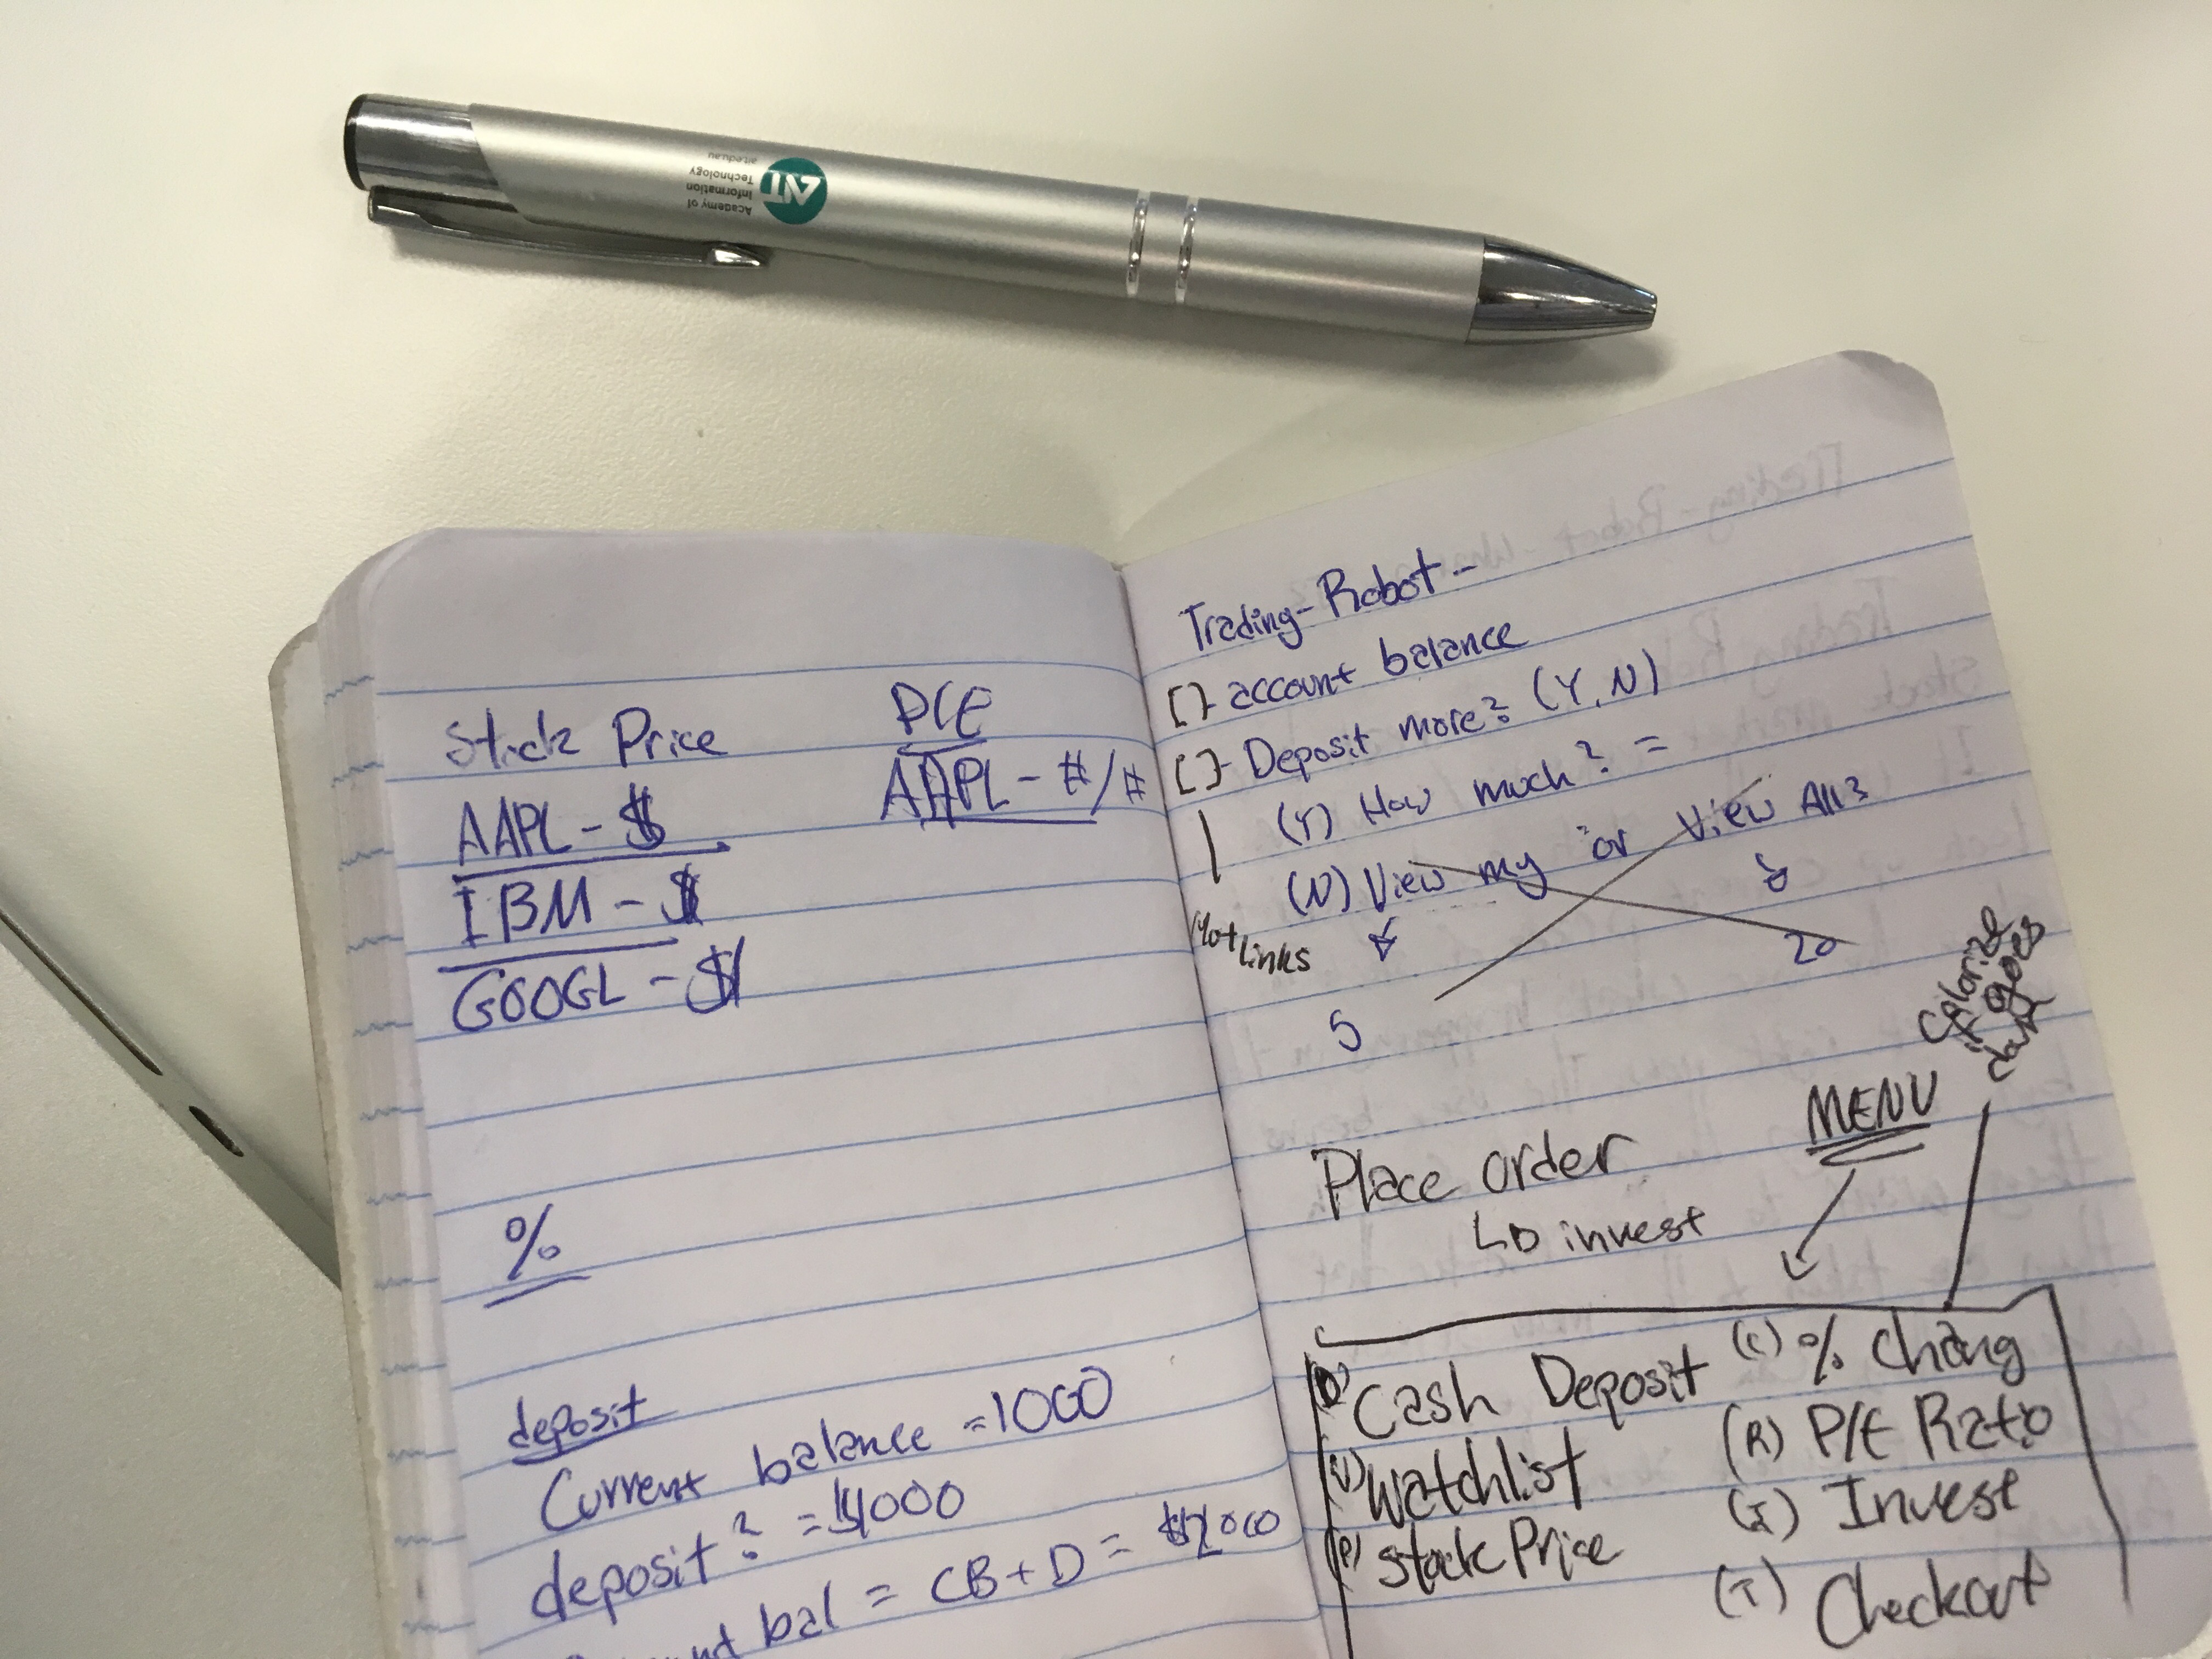 AIT
Academy of
Information
Technology
ait.edu.au
Stick Price
AAPL - $
IBM - $
GOOGL - $
P/E
AAPL - #/#
%
deposit
Current balance = 1000
deposit? = $1000
bal = CB + D = $2000
Trading-Robot -
[]- account balance
[]- Deposit more? (Y, N)
(Y) How much? =
(N) View my or View All?
Hot Links
5
20
Colorize
if goes
down
MENU
Place order
invest
(D) Cash Deposit (C) % Chang
Watchlist (R) P/E Ratio
(P) Stock Price (I) Invest
(T) Checkout